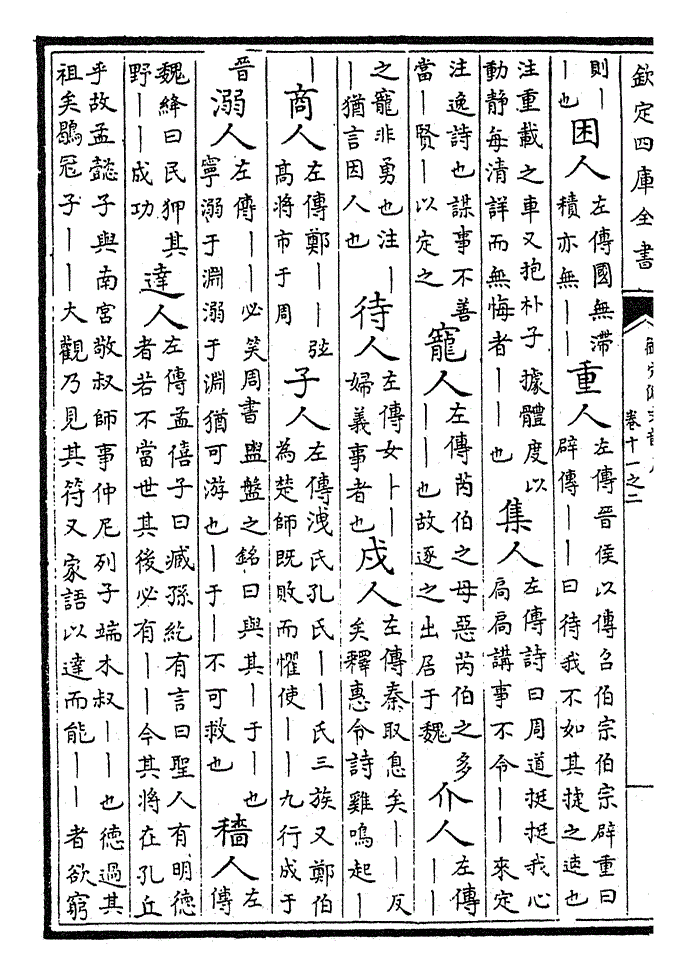 欽定四庫全書
卷十一之二
則丨
丨也
困人
左傳國無滯
積亦無丨丨
重人
左傳晉侯以傳召伯宗伯宗辟重曰
辟傳丨丨曰待我不如其捷之速也
注重載之車又抱朴子據體度以
動靜每清詳而無悔者丨丨也
集人
左傳詩曰周道挺挺我心
扃扃講事不令丨丨來定
注逸詩也謀事不善
當丨賢丨以定之
寵人
左傳芮伯之母惡芮伯之多
丨丨也故逐之出居于魏
介人
左傳
丨丨
之寵非勇也注丨
丨猶言因人也
待人
左傳女卜丨
婦義事者也
戍人
左傳秦取息矣丨丨反
矣釋惠令詩雞鳴起丨
丨
商人
左傳鄭丨丨弦
高將市于周
子人
左傳洩氏孔氏丨丨氏三族又鄭伯
為楚師既敗而懼使丨丨九行成于
晉
溺人
左傳丨丨必笑周書盥盤之銘曰與其丨于丨也
寧溺于淵溺于淵猶可游也丨于丨不可救也
穡人
左
傳
魏絳曰民狎其
野丨丨成功
達人
左傳孟僖子曰臧孫紇有言曰聖人有明德
者若不當世其後必有丨丨今其將在孔丘
乎故孟懿子與南宮敬叔師事仲尼列子端木叔丨丨也德過其
祖矣鶡冠子丨丨大觀乃見其符又家語以達而能丨丨者欲窮